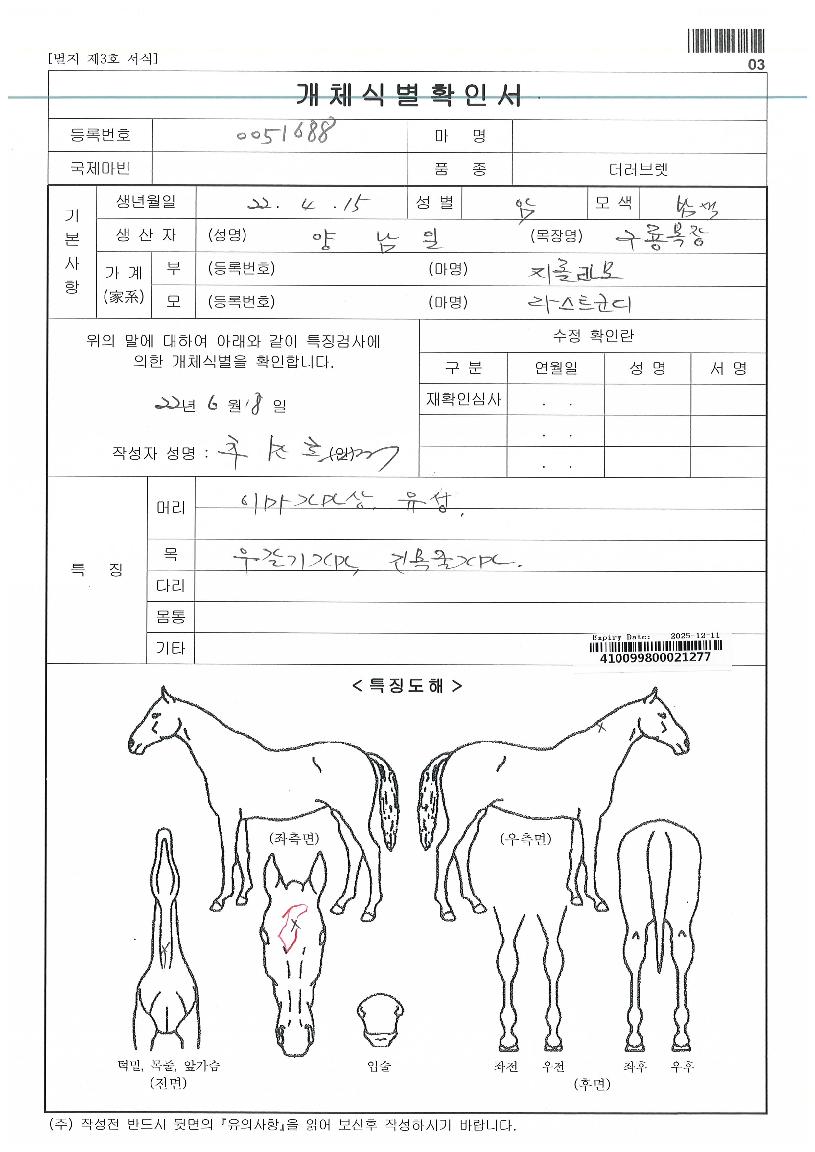 [별지 제3호 서식]
03
개체식별확인서
등록번호 0051688 마 명
국제마빈 품 종 더러브렛
기본사항
생년월일 22. 4 .15 성 별 암 모 색
생 산 자 (성명) 양 남 (목장명) 구룡목장
가 계 (家系) 부 (등록번호) (마명) 지롤라모
모 (등록번호) (마명) 라스트군디
위의 말에 대하여 아래와 같이 특징검사에
의한 개체식별을 확인합니다.
22년 6 월 18 일
작성자 성명 : (인)
수정 확인란
구 분 연월일 성 명 서 명
재확인심사 . .
. .
. .
특 징
머리 이마 상, 유성.
목
다리
몸통
기타
Expiry Date: 2025-12-11
410099800021277
< 특징도해 >
(좌측면) (우측면)
턱밑, 목줄, 앞가슴
(전면)
입술
좌전 우전 좌후 우후
(후면)
(주) 작성전 반드시 뒷면의 『유의사항』을 읽어 보신후 작성하시기 바랍니다.